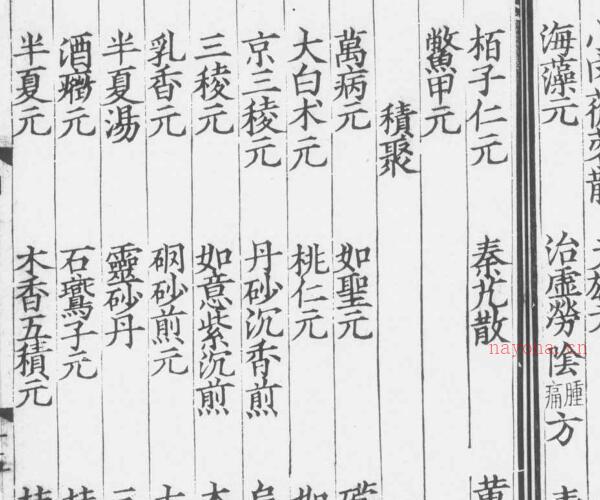 海藻元 治虛勞陰腫痛方
栢子仁元 秦艽散
鱉甲元
積聚
萬病元 如聖元
大白术元 桃仁元
京三稜元 丹砂沉香煎
三稜元 如意紫沉煎
乳香元 硇砂煎元
半夏湯 靈砂丹
酒癥元 石鷰子元
半夏元 木香五積元
nayona.cn